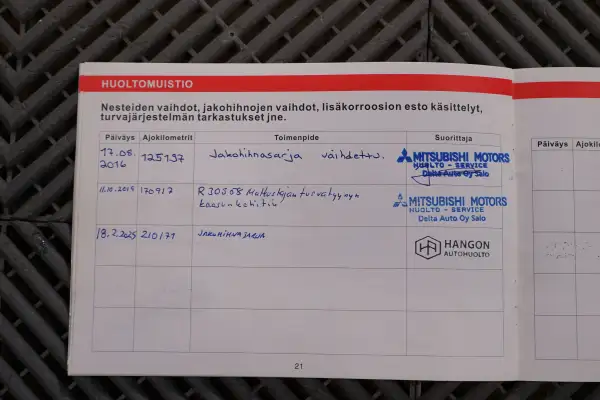 HUOLTOMUISTIO
Nesteiden vaihdot, jakohihnojen vaihdot, lisäkorroosion esto käsittelyt,
turvajärjestelmän tarkastukset jne.
Päiväys Ajokilometrit Toimenpide Suorittaja
17.08. 2016 125137 Jakohihnasarja vaihdettu. MITSUBISHI MOTORS
HUOLTO - SERVICE
Delta Auto Oy Salo
170917 MITSUBISHI MOTORS
HUOLTO - SERVICE
Delta Auto Oy Salo
18.2.2025 210171 JAKOHIHNASARJA HANGON
AUTOHUOLTO
21
Päiväys